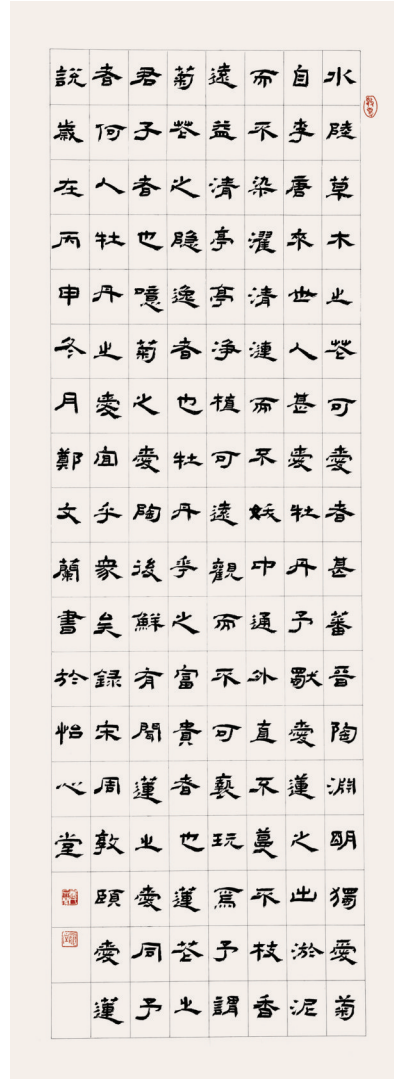 水陸草木之花可愛者甚蕃晉陶淵明獨愛菊
自李唐來世人甚愛牡丹予獨愛蓮之出淤泥
而不染濯清漣而不妖中通外直不蔓不枝香
遠益清亭亭淨植可遠觀而不可褻玩焉予謂
菊花之隱逸者也牡丹花之富貴者也蓮花之
君子者也噫菊之愛陶後鮮有聞蓮之愛同予
者何人牡丹之愛宜乎眾矣錄宋周敦頤愛蓮
說歲在丙申冬月鄭文蘭書於怡心堂